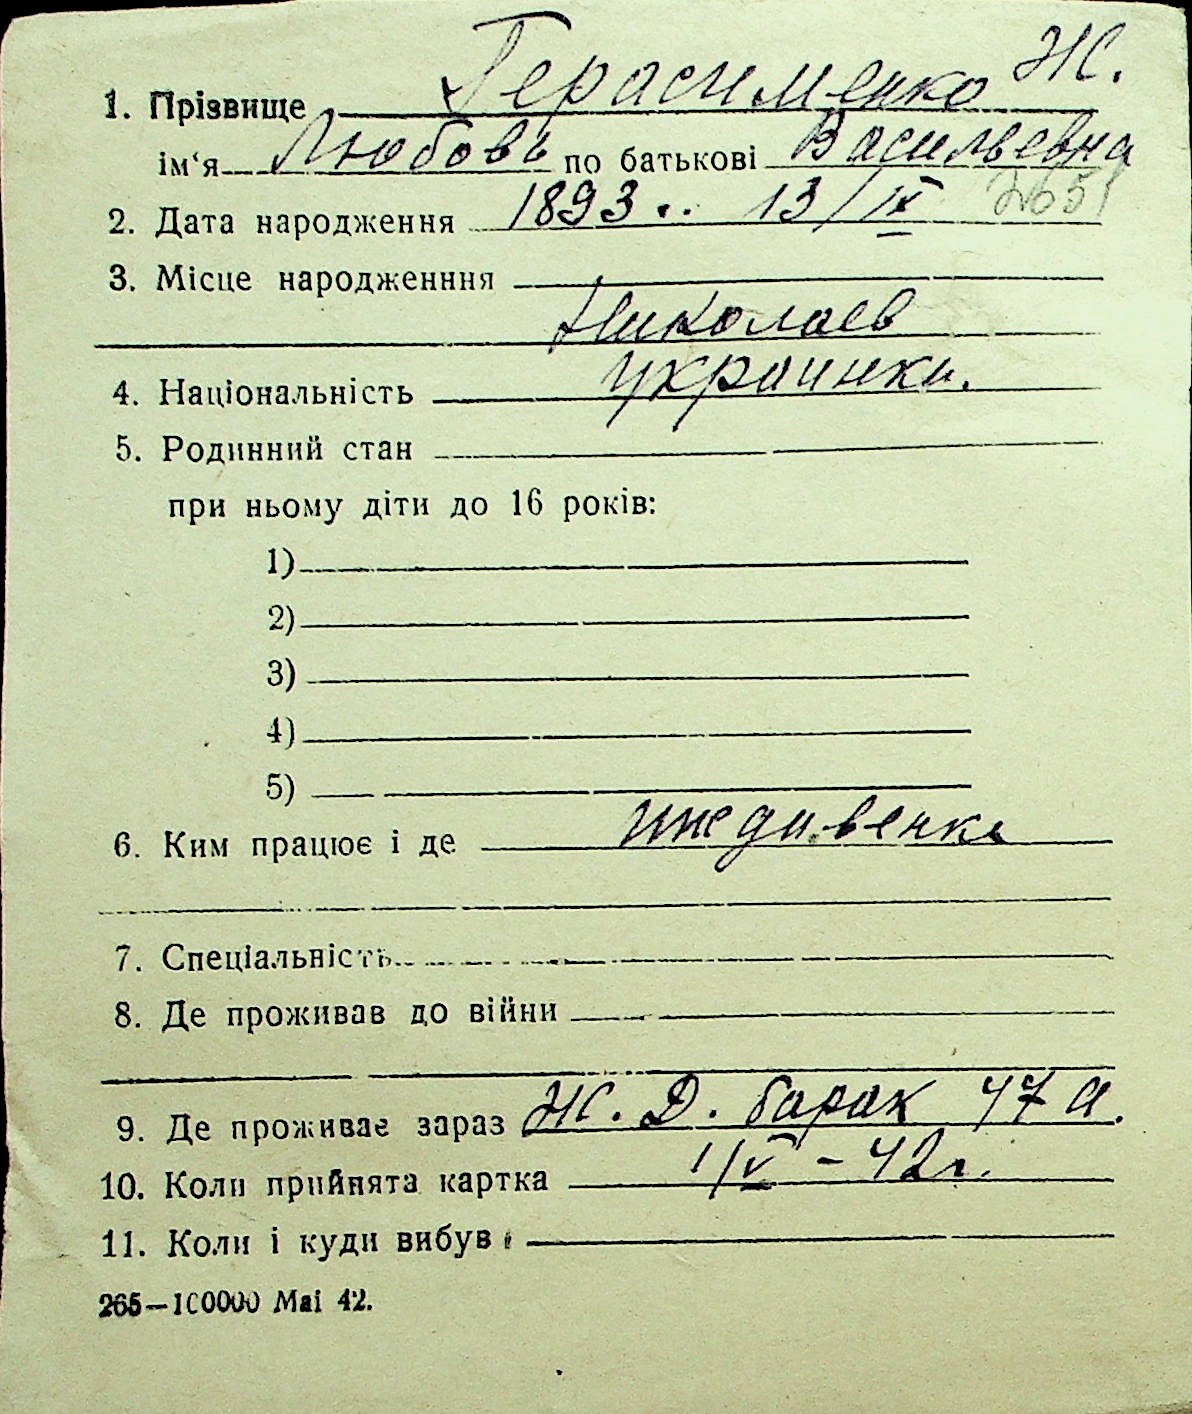 1. Прізвище Герасименко Ж.
ім'я Любовь по батькові Васильевна
2. Дата народження 1893 г. 13/IX 2651
3. Місце народженння
Николаев
4. Національність украинка.
5. Родинний стан
при ньому діти до 16 років:
1)
2)
3)
4)
5)
6. Ким працює і де иждивенка
7. Спеціальність
8. Де проживав до війни
9. Де проживає зараз Ж. Д. барак 47 а.
10. Коли прийнята картка 1/V - 42 г.
11. Коли і куди вибув
265—100000 Mai 42.